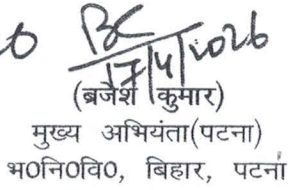 BC
17/4/2026
(ब्रजेश कुमार)
मुख्य अभियंता(पटना)
भ०नि०वि०, बिहार, पटना